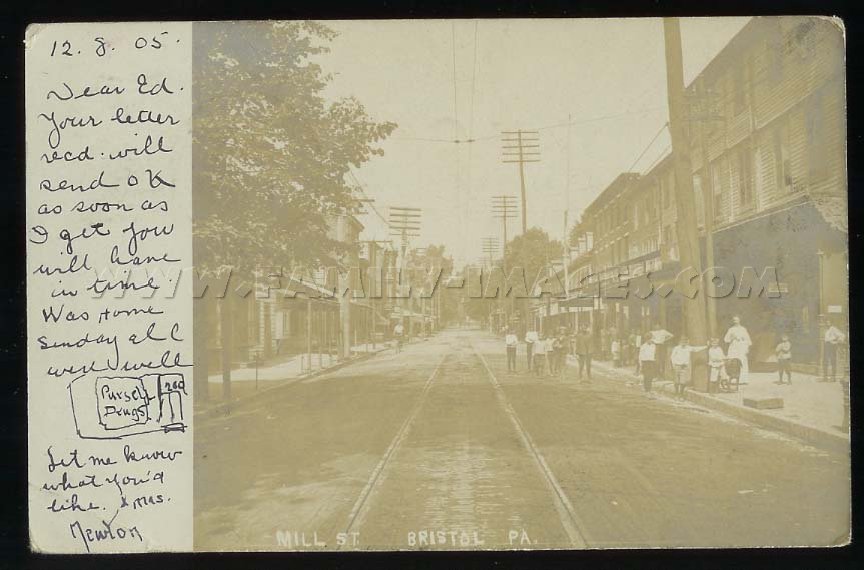 12. 8. 05.
Dear Ed.
Your letter
recd. will
send OK
as soon as
I get
will have
in time
Was home
Sunday all
well
Pursell
Drugs
Let me know
what you'd
like. Xmas.
Newton
WWW.FAMILY-IMAGES.COM
MILL ST. BRISTOL PA.